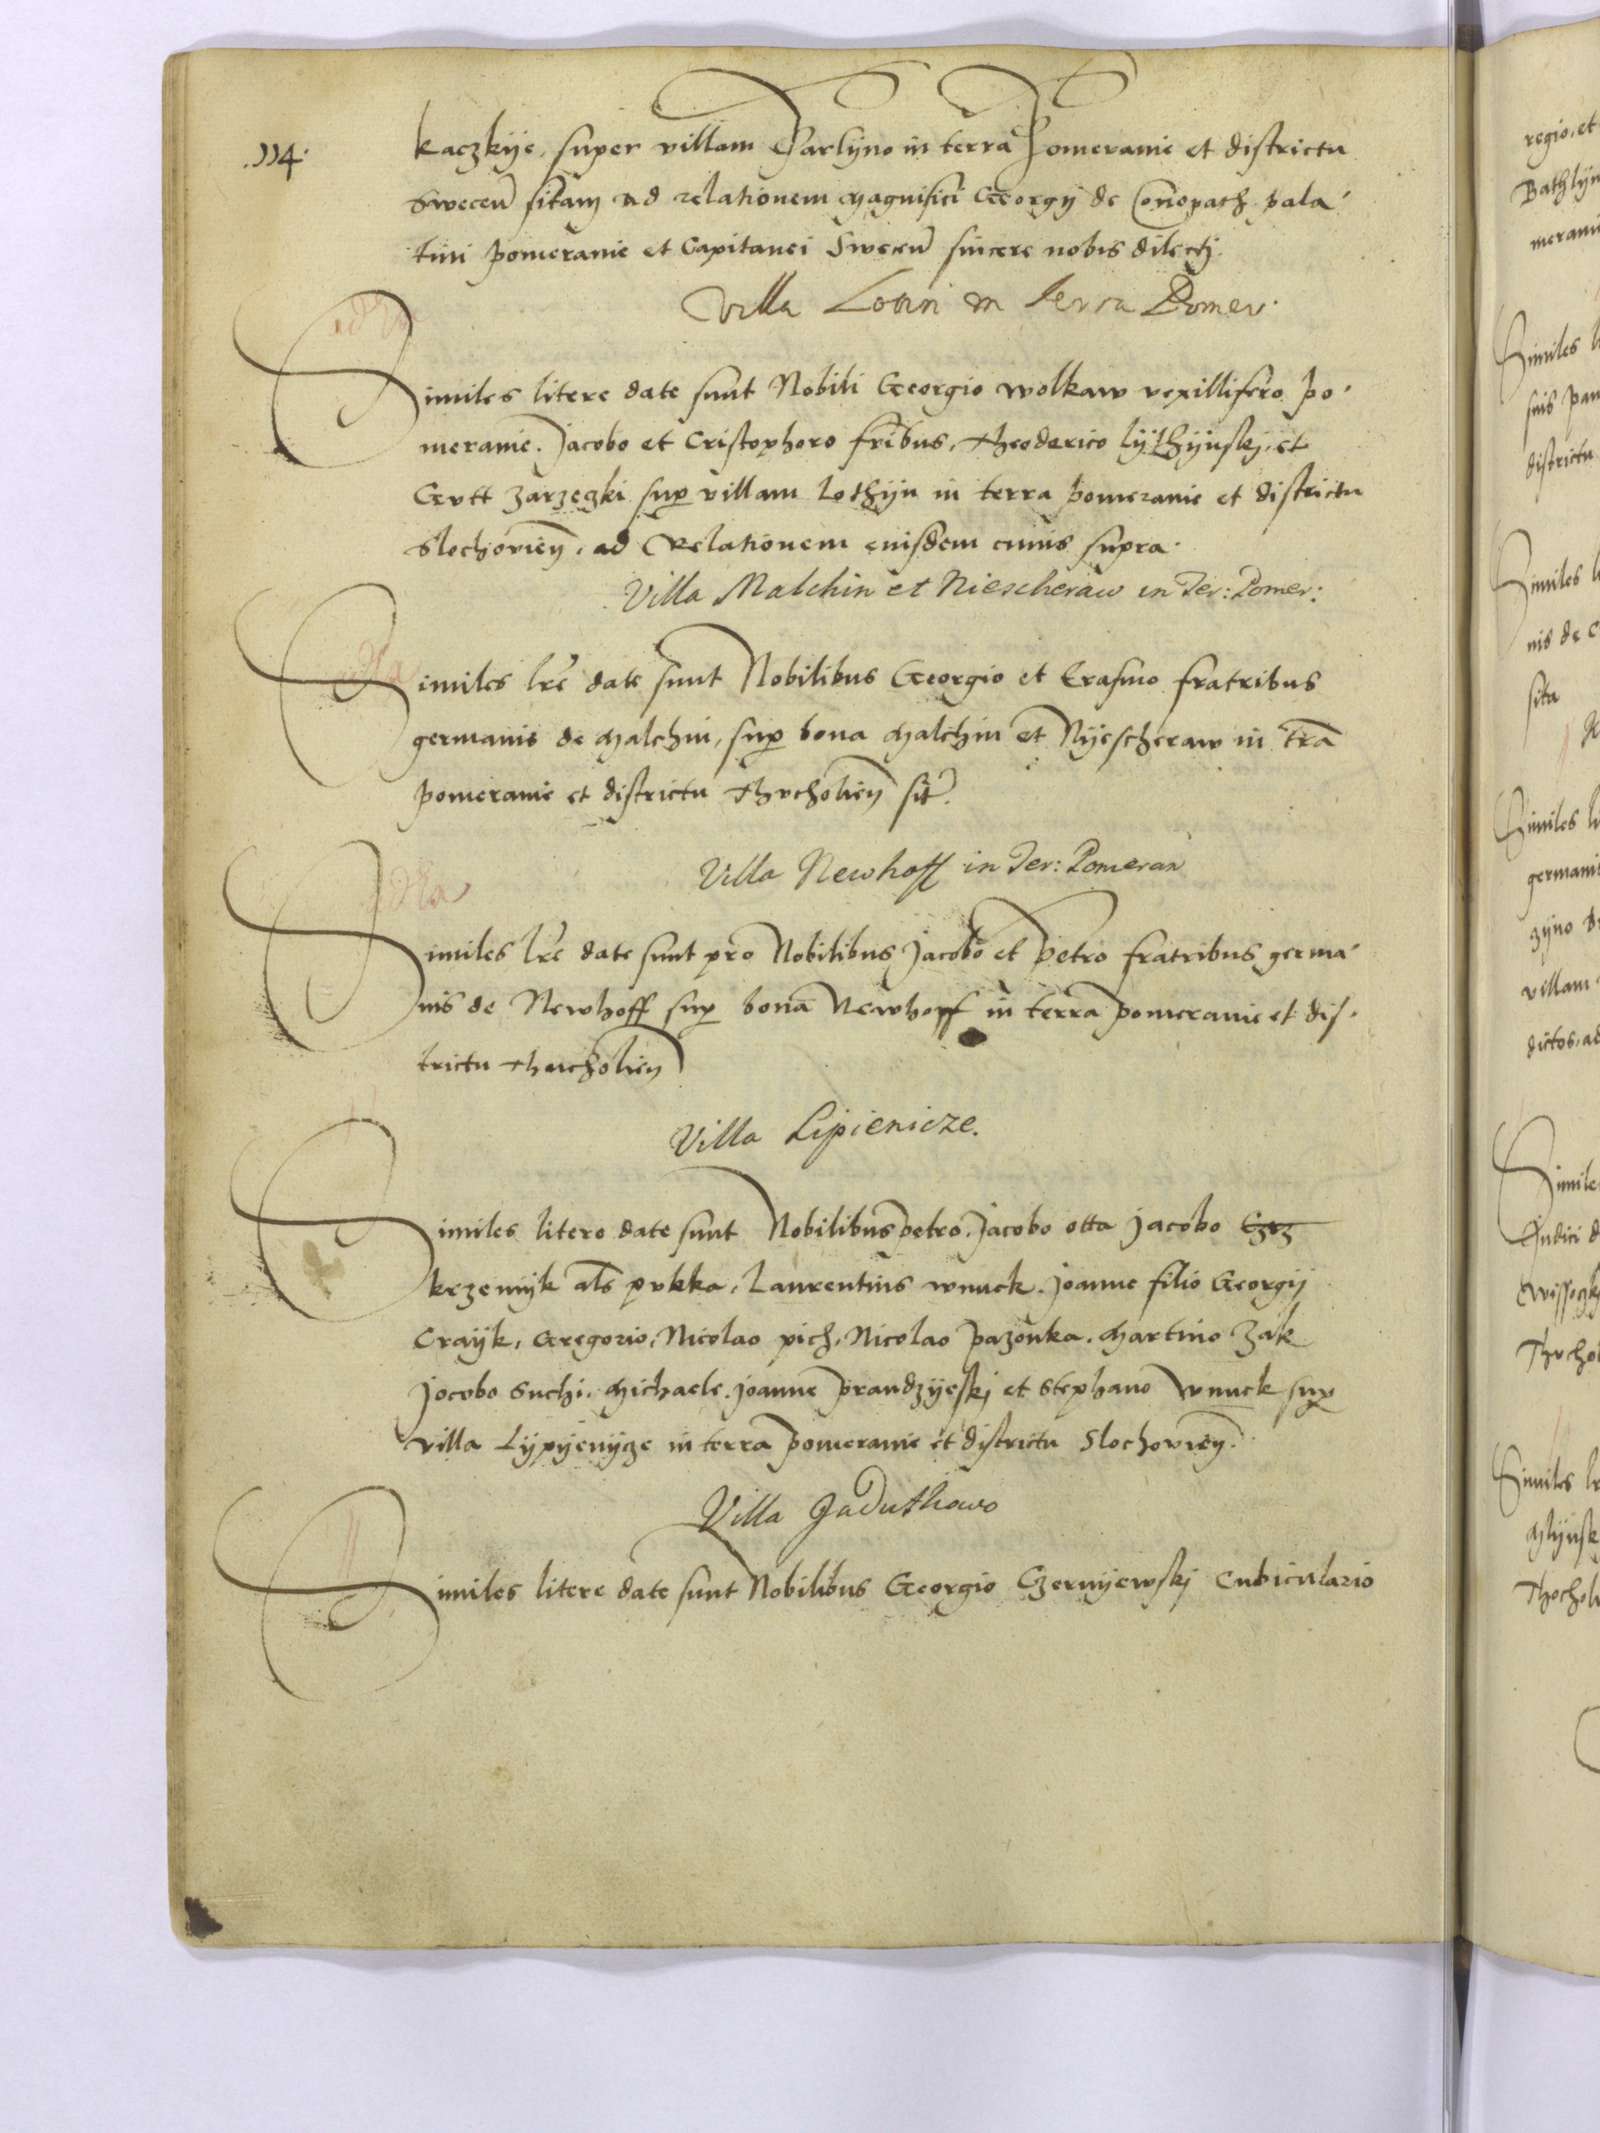 .114.
kaczkije, super villam Parlijno in terra Pomeranie et districtu
Sweceñ sitam ad relationem Magnifici Georgij de Conopath pala
tini pomeranie et Capitanei Sweceñ sincere nobis dilectj.
Villa Lotin in Terra Pomer.
Similes litere date sunt Nobili Georgio wolkaw vexillifero po
meranie. Jacobo et Cristophoro fribus, Theoderico lijthijnskj, et
Gertt zarzeczki sup villam Lothijn in terra pomeranie et districtu
Slochovień, ad Relationem cuisdem cuius supra.
Villa Malchin et Niescheraw in Ter: Pomer:
Similes lre date sunt Nobilibus Georgio et Erasmo fratribus
germanis de Malchin, sup bona Malchin et Nijescheraw in tra
pomeranie et districtu Thvcholień sit.
Villa Newhoff in Ter: Pomeran
Similes lre date sunt pro Nobilibus Jacobo et petro fratribus germa
nis de Newhoff sup bona Newhoff in terra pomeranie et dis
trictu Thucholień
Villa Lipienicze.
Similes litere date sunt Nobilibus petro. Jacobo otta Jacobo
krzemijk als pvkka, Laurentius wnuck. Joanne filio Georgij
Craijk, Gregorio, Nicolao pich, Nicolao pazonka. Martino Zak
Jocobo Suchi. Michaele. Joanne prandzijeskj et Stephano Wnuck sup
villa Lijpijenijcze in terra pomeranie et districtu Slochovień.
Villa Gaduthowo
Similes litere date sunt Nobilibus Georgio Czernijewskj Cubiculario
regio, et
Bathlijn
merani
Similes
suis pan
districtu
Similes
nis de
sita
Similes
germanis
zijno
villam
dictos, ad
Simile
Judici d
Thvcho
Similes
Mlijnsk
Thochol